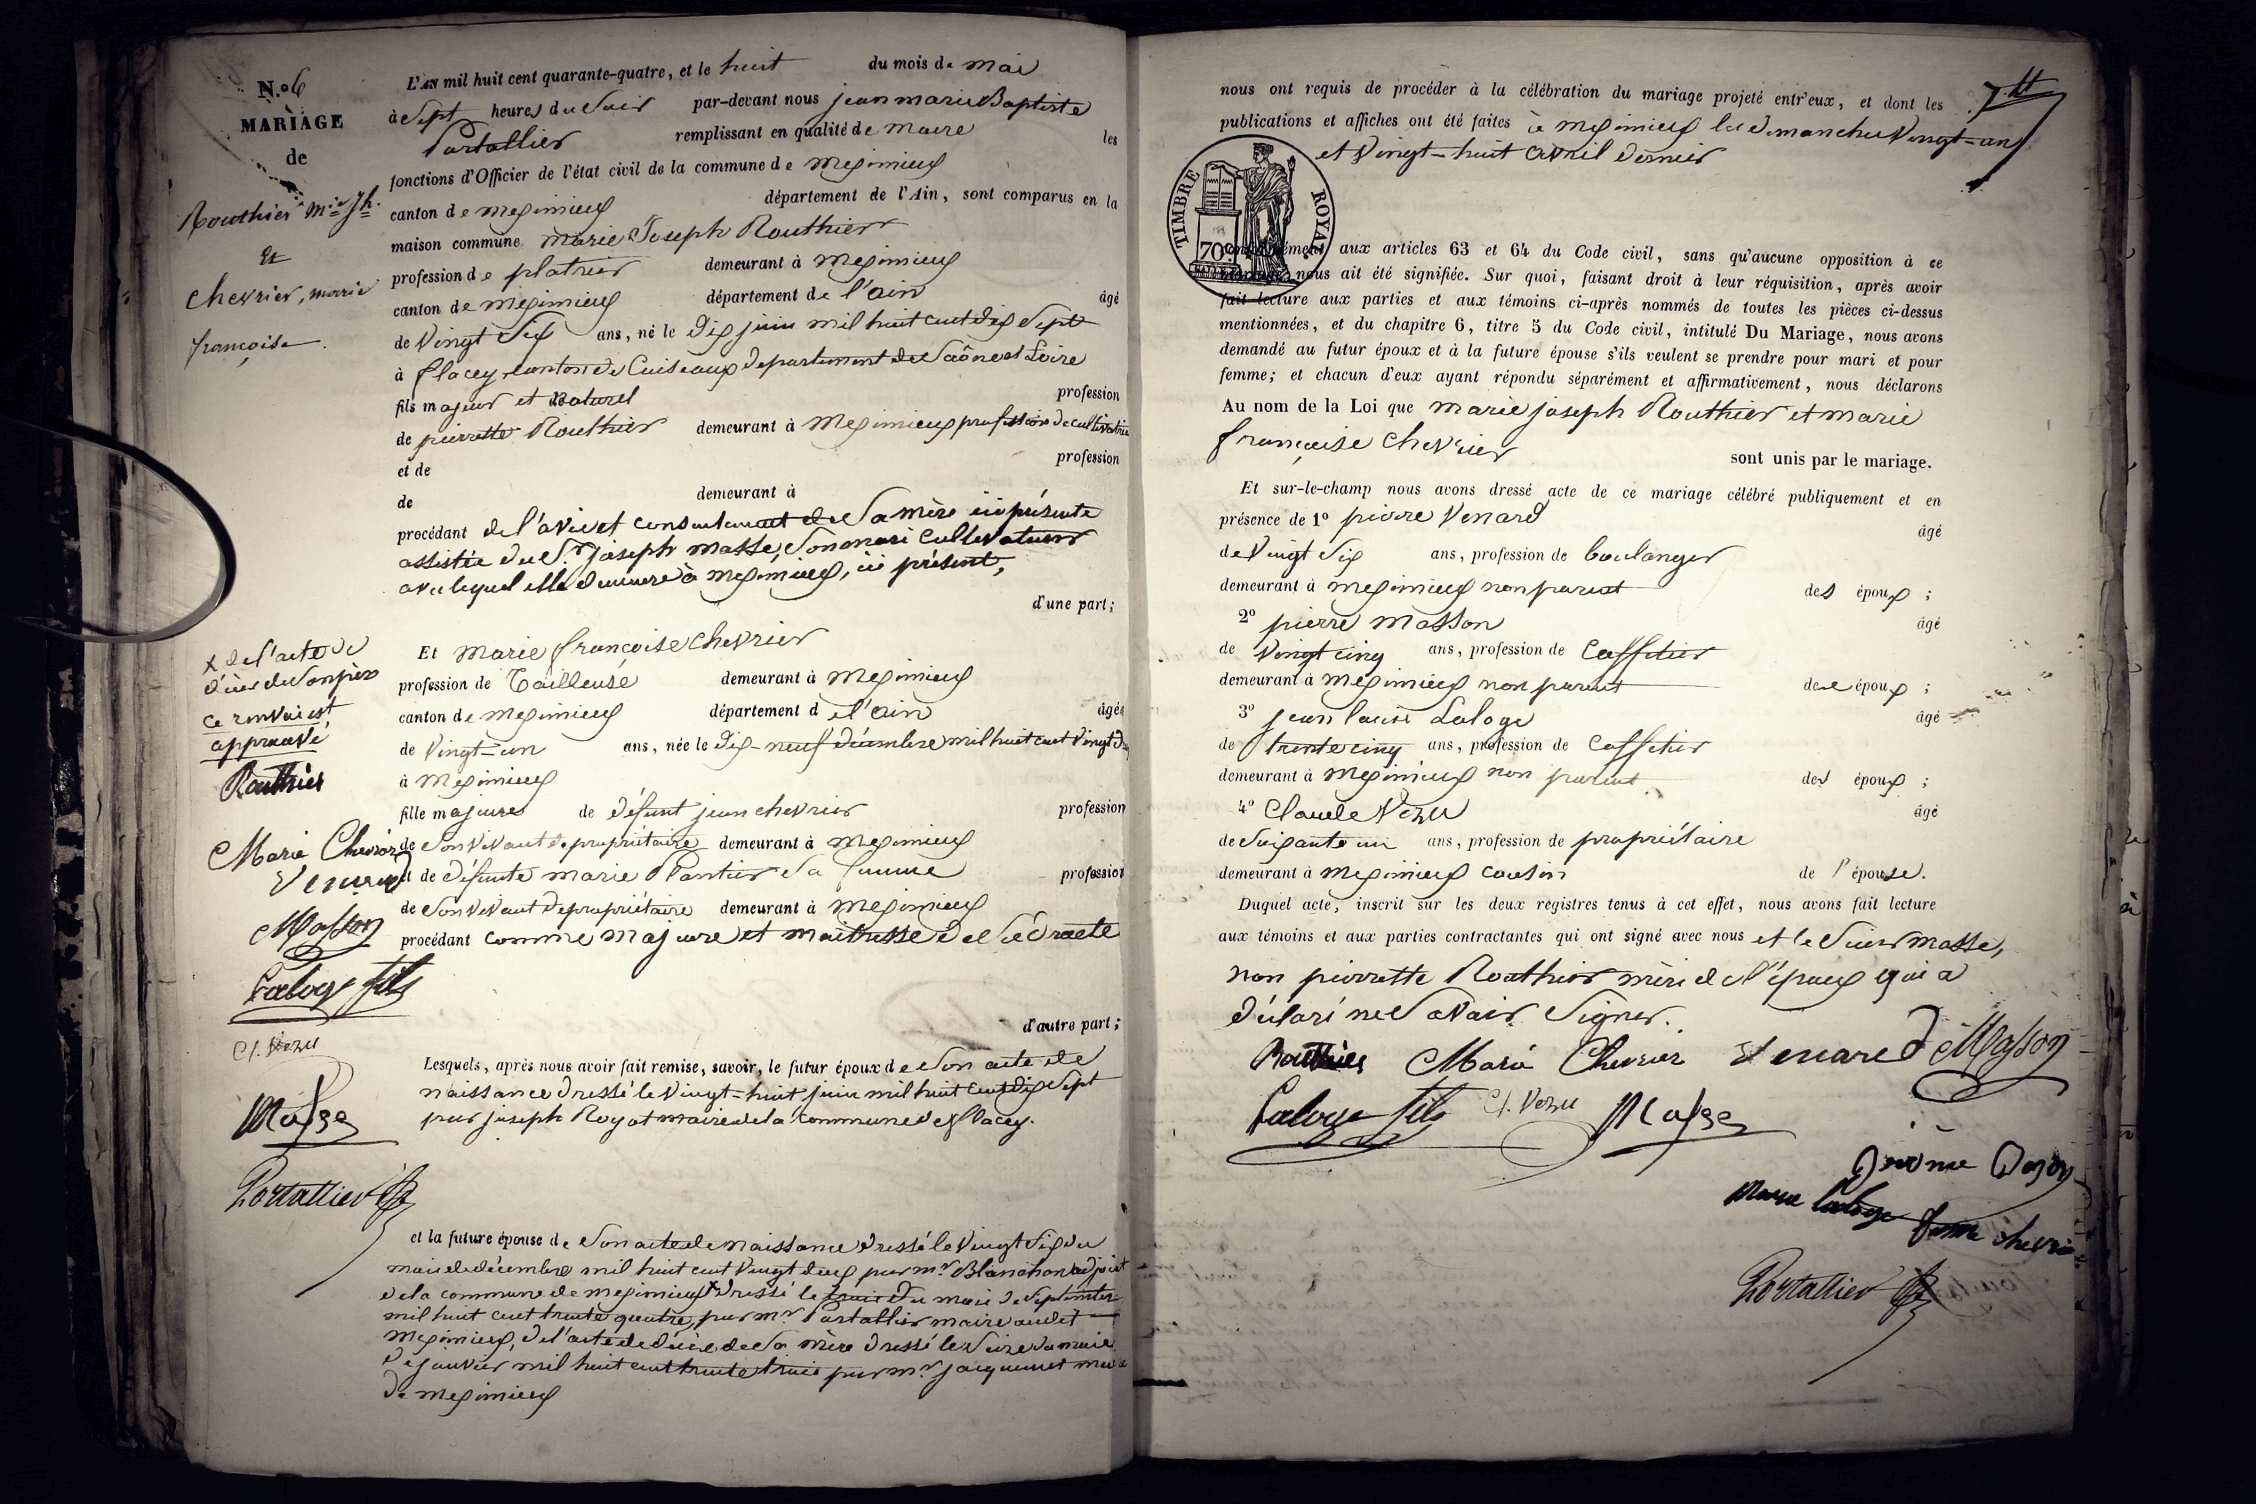 N.o 6
MARIAGE
de
Routhier M.ie Jh.
Et
chevrier, marie
françoise.
L'AN mil huit cent quarante-quatre, et le huit du mois de mai
à Sept heures du Soir par-devant nous jean marie Baptiste
Portallier remplissant en qualité de maire les
fonctions d'Officier de l'état civil de la commune de meximieux
canton de meximieux département de l'Ain, sont comparus en la
maison commune marie Joseph Routhier
profession de platrier demeurant à meximieux
canton de meximieux département de l'ain âgé
de Vingt Six ans, né le dix juin mil huit cent dix Sept
à flacey canton de Cuiseaux departement de Saône et Loire
fils majeur et naturel profession
de pierrette Routhier demeurant à Meximieux profession de cultivatrice
et de profession
de demeurant à
procédant de l'avis et consentement de Sa mère ici présente
assistée du S.r joseph masse, Son mari cultivateur
avec lequel elle demeure à meximieux, ici présent,
d'une part;
Et marie françoise chevrier
profession de Tailleuse demeurant à meximieux
canton de meximieux département de l'ain âgée
de vingt-un ans, née le dix-neuf décembre mil huit cent vingt deux
à meximieux
fille majeure de défunt jean chevrier profession
de Son vivant de propriétaire demeurant à meximieux
et de défunte marie Plantier Sa femme profession
de Son vivant de propriétaire demeurant à meximieux
procédant comme majeure et maitresse de Ses droits
d'autre part;
Lesquels, après nous avoir fait remise, savoir, le futur époux de Son acte de
naissance dressé le vingt-huit juin mil huit cent dix Sept
par joseph Royat maire de la commune de flacey.
et la future épouse de Son acte de naissance dressé le vingt Six du
mois de décembre mil huit cent vingt deux par m.r Blanchon adjoint
de la commune de meximieux x dressé le trois du mois de Septembre
mil huit cent trente quatre, par m.r Portallier maire audit
meximieux, de l'acte de décès de Sa mère dressé le Seize du mois
de janvier mil huit cent trente trois par m.r jacquemet maire
de meximieux
x de l'acte de
décès de Son père
ce renvoi est
approuvé
Routhier
Marie Chevrier
Venard
Masson
Laloge fils
Cl. Vezu
Masse
Portallier
nous ont requis de procéder à la célébration du mariage projeté entr'eux, et dont les
publications et affiches ont été faites à meximieux les dimanches Vingt-un
et Vingt-huit avril dernier
TIMBRE ROYAL
70c
conformément aux articles 63 et 64 du Code civil, sans qu'aucune opposition à ce
mariage nous ait été signifiée. Sur quoi, faisant droit à leur réquisition, après avoir
fait lecture aux parties et aux témoins ci-après nommés de toutes les pièces ci-dessus
mentionnées, et du chapitre 6, titre 5 du Code civil, intitulé Du Mariage, nous avons
demandé au futur époux et à la future épouse s'ils veulent se prendre pour mari et pour
femme; et chacun d'eux ayant répondu séparément et affirmativement, nous déclarons
Au nom de la Loi que marie joseph Routhier et marie
françoise chevrier
sont unis par le mariage.
Et sur-le-champ nous avons dressé acte de ce mariage célébré publiquement et en
présence de 1o pierre Venard âgé
de Vingt Six ans, profession de boulanger
demeurant à meximieux non parent des époux ;
2o pierre Masson âgé
de vingt cinq ans, profession de Caffetier
demeurant à meximieux non parent des époux ;
3o jean louis Laloge âgé
de trente cinq ans, profession de Caffetier
demeurant à meximieux non parent des époux ;
4o Claude Vezu âgé
de Soixante un ans, profession de propriétaire
demeurant à meximieux cousin de l'épouse.
Duquel acte, inscrit sur les deux registres tenus à cet effet, nous avons fait lecture
aux témoins et aux parties contractantes qui ont signé avec nous et le Sieur Masse,
non pierrette Routhier mère de l'époux qui a
déclaré ne Savoir Signer.
Routhier Marie Chevrier Venard Masson
Laloge fils Cl. Vezu Masse
jérôme
Marie Laloge femme chevrier
Portallier